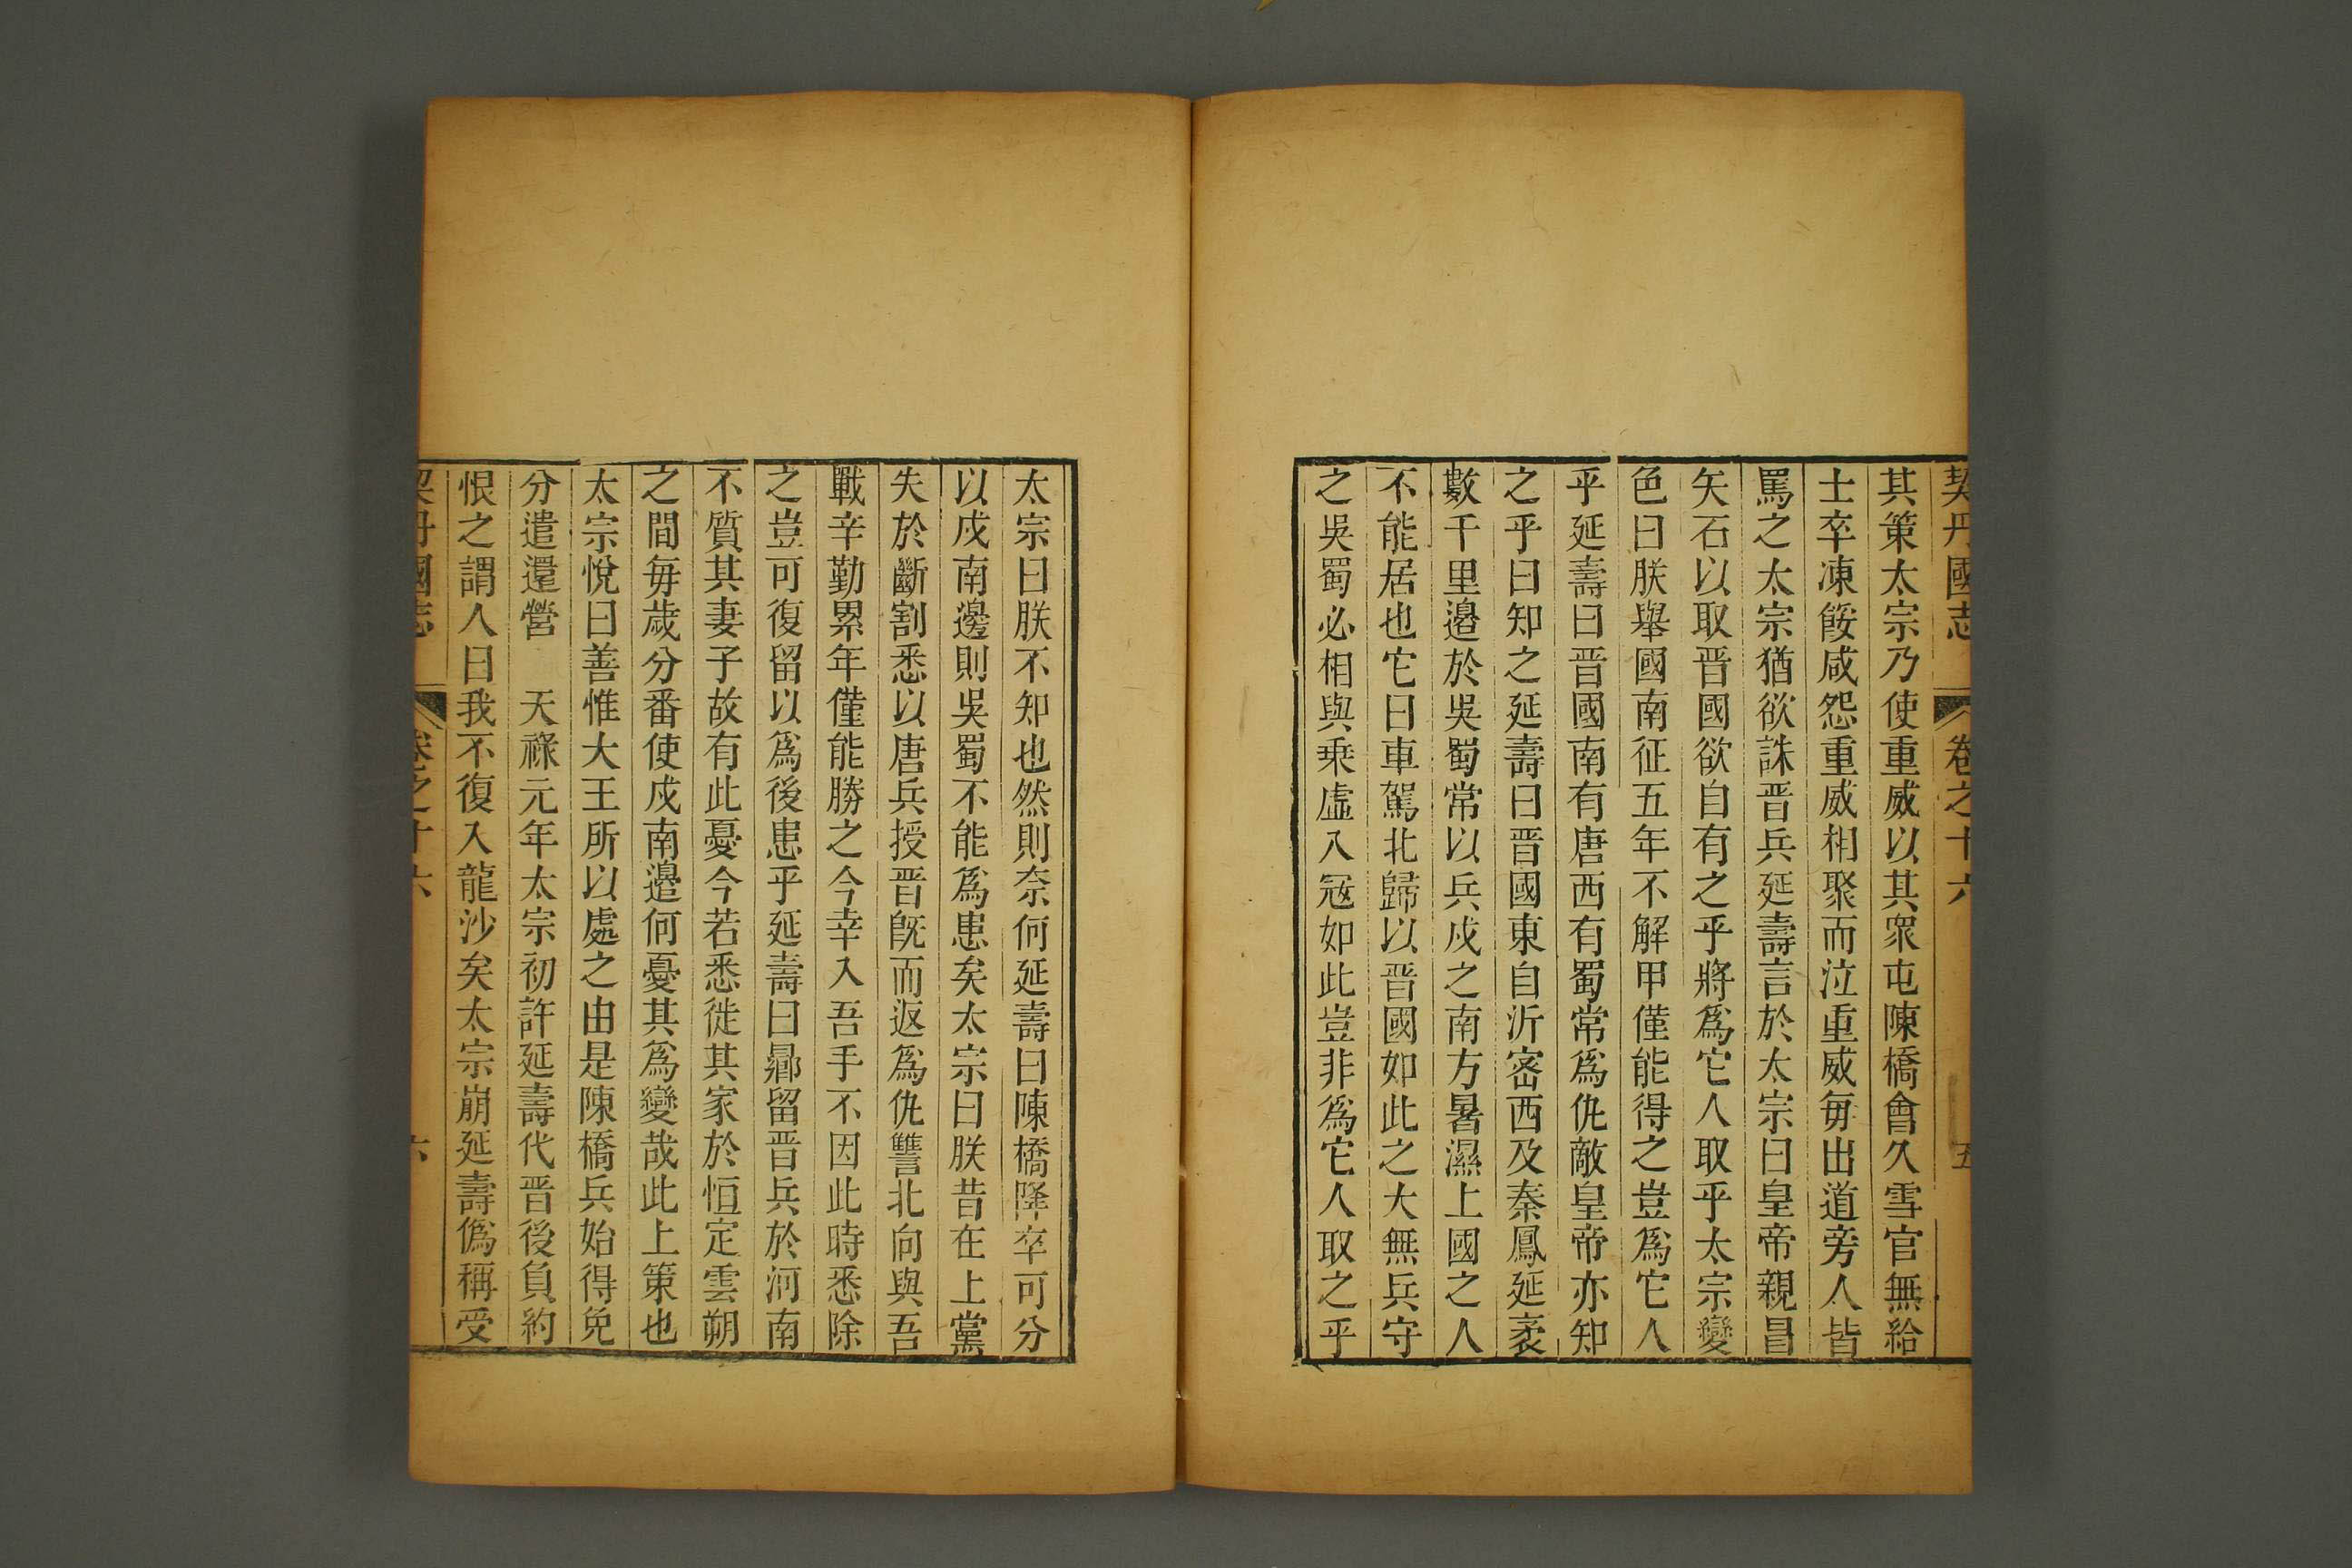 契丹國志 卷之十六 五
其策太宗乃使重威以其衆屯陳橋會久雪官無給
士卒凍餒咸怨重威相聚而泣重威毎出道旁人皆
罵之太宗猶欲誅晋兵延壽言於太宗曰皇帝親冒
矢石以取晋國欲自有之乎將爲它人取乎太宗變
色曰朕舉國南征五年不解甲僅能得之豈爲它人
乎延壽曰晋國南有唐西有蜀常爲仇敵皇帝亦知
之乎曰知之延壽曰晋國東自沂宻西及秦鳳延袤
數千里邉於吳蜀常以兵戍之南方暑濕上國之人
不能居也它日車駕北歸以晋國如此之大無兵守
之吳蜀必相與乗虛入冦如此豈非爲它人取之乎
太宗曰朕不知也然則奈何延壽曰陳橋降卒可分
以戍南邊則吳蜀不能爲患矣太宗曰朕昔在上黨
失於斷割悉以唐兵授晋旣而返爲仇讐北向與吾
戰辛勤累年僅能勝之今幸入吾手不因此時悉除
之豈可復留以爲後患乎延壽曰曏留晋兵於河南
不質其妻子故有此憂今若悉徙其家於恒定雲朔
之間毎歲分番使戍南邉何憂其爲變哉此上策也
太宗悅曰善惟大王所以處之由是陳橋兵始得免
分遣還營　天祿元年太宗初許延壽代晋後負約
恨之謂人曰我不復入龍沙矣太宗崩延壽僞稱受
契丹國志 卷之十六 六